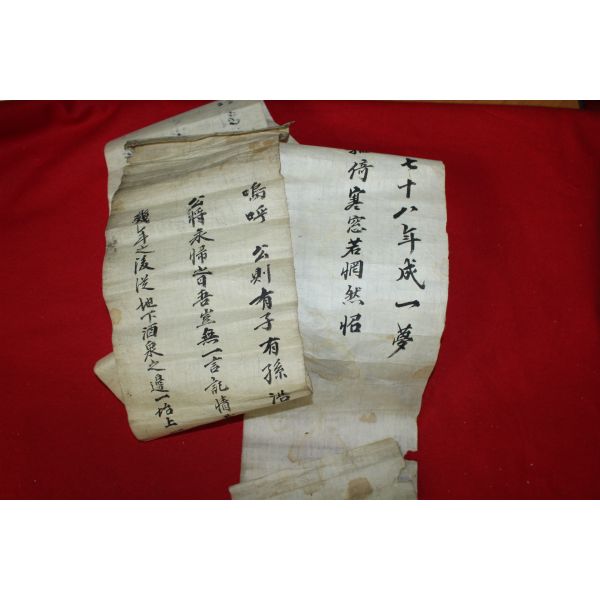 七十八年成一夢
倚寒窓若惘然怊
嗚呼 公則有子有孫浩
公將永歸嗇吾豈無一言記情
幾年之後從地下酒泉之邊一坮上